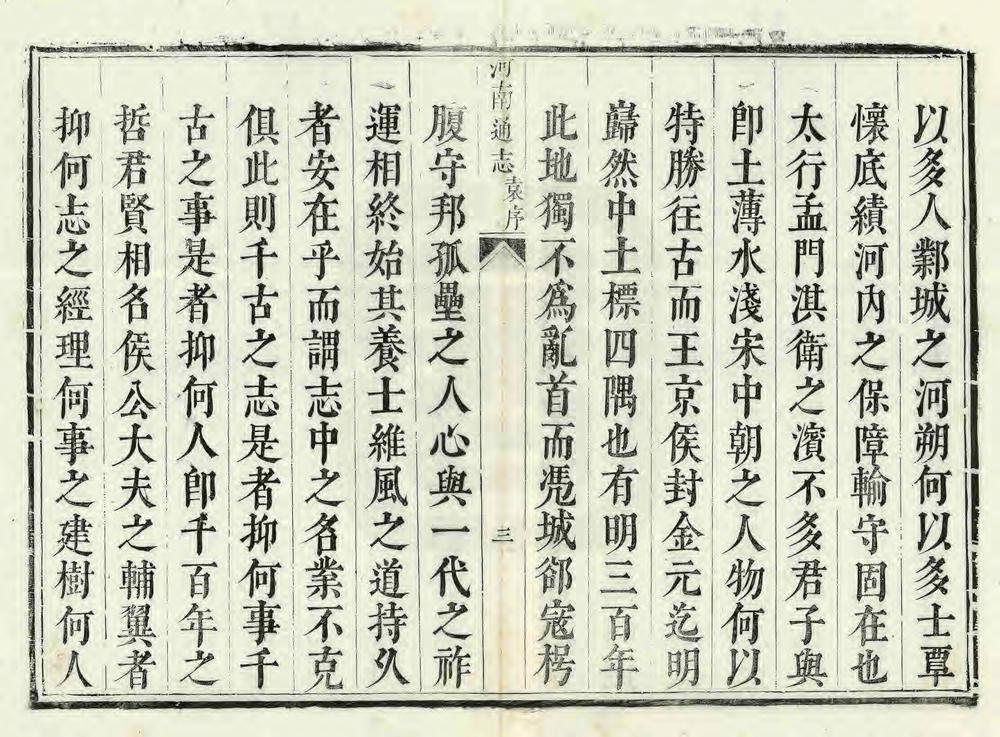 以多人鄴城之河朔何以多士覃
懷底績河內之保障輸守固在也
太行孟門淇衛之濱不多君子與
卽土薄水淺宋中朝之人物何以
特勝往古而王京侯封金元迄明
巋然中土標四隅也有明三百年
此地獨不爲亂首而凴城郤寇枵
河南通志 袁序 三
腹守邦孤壘之人心與一代之祚
運相終始其養士維風之道持久
者安在乎而謂志中之名業不克
俱此則千古之志是者抑何事千
古之事是者抑何人卽千百年之
哲君賢相名侯公大夫之輔翼者
抑何志之經理何事之建樹何人